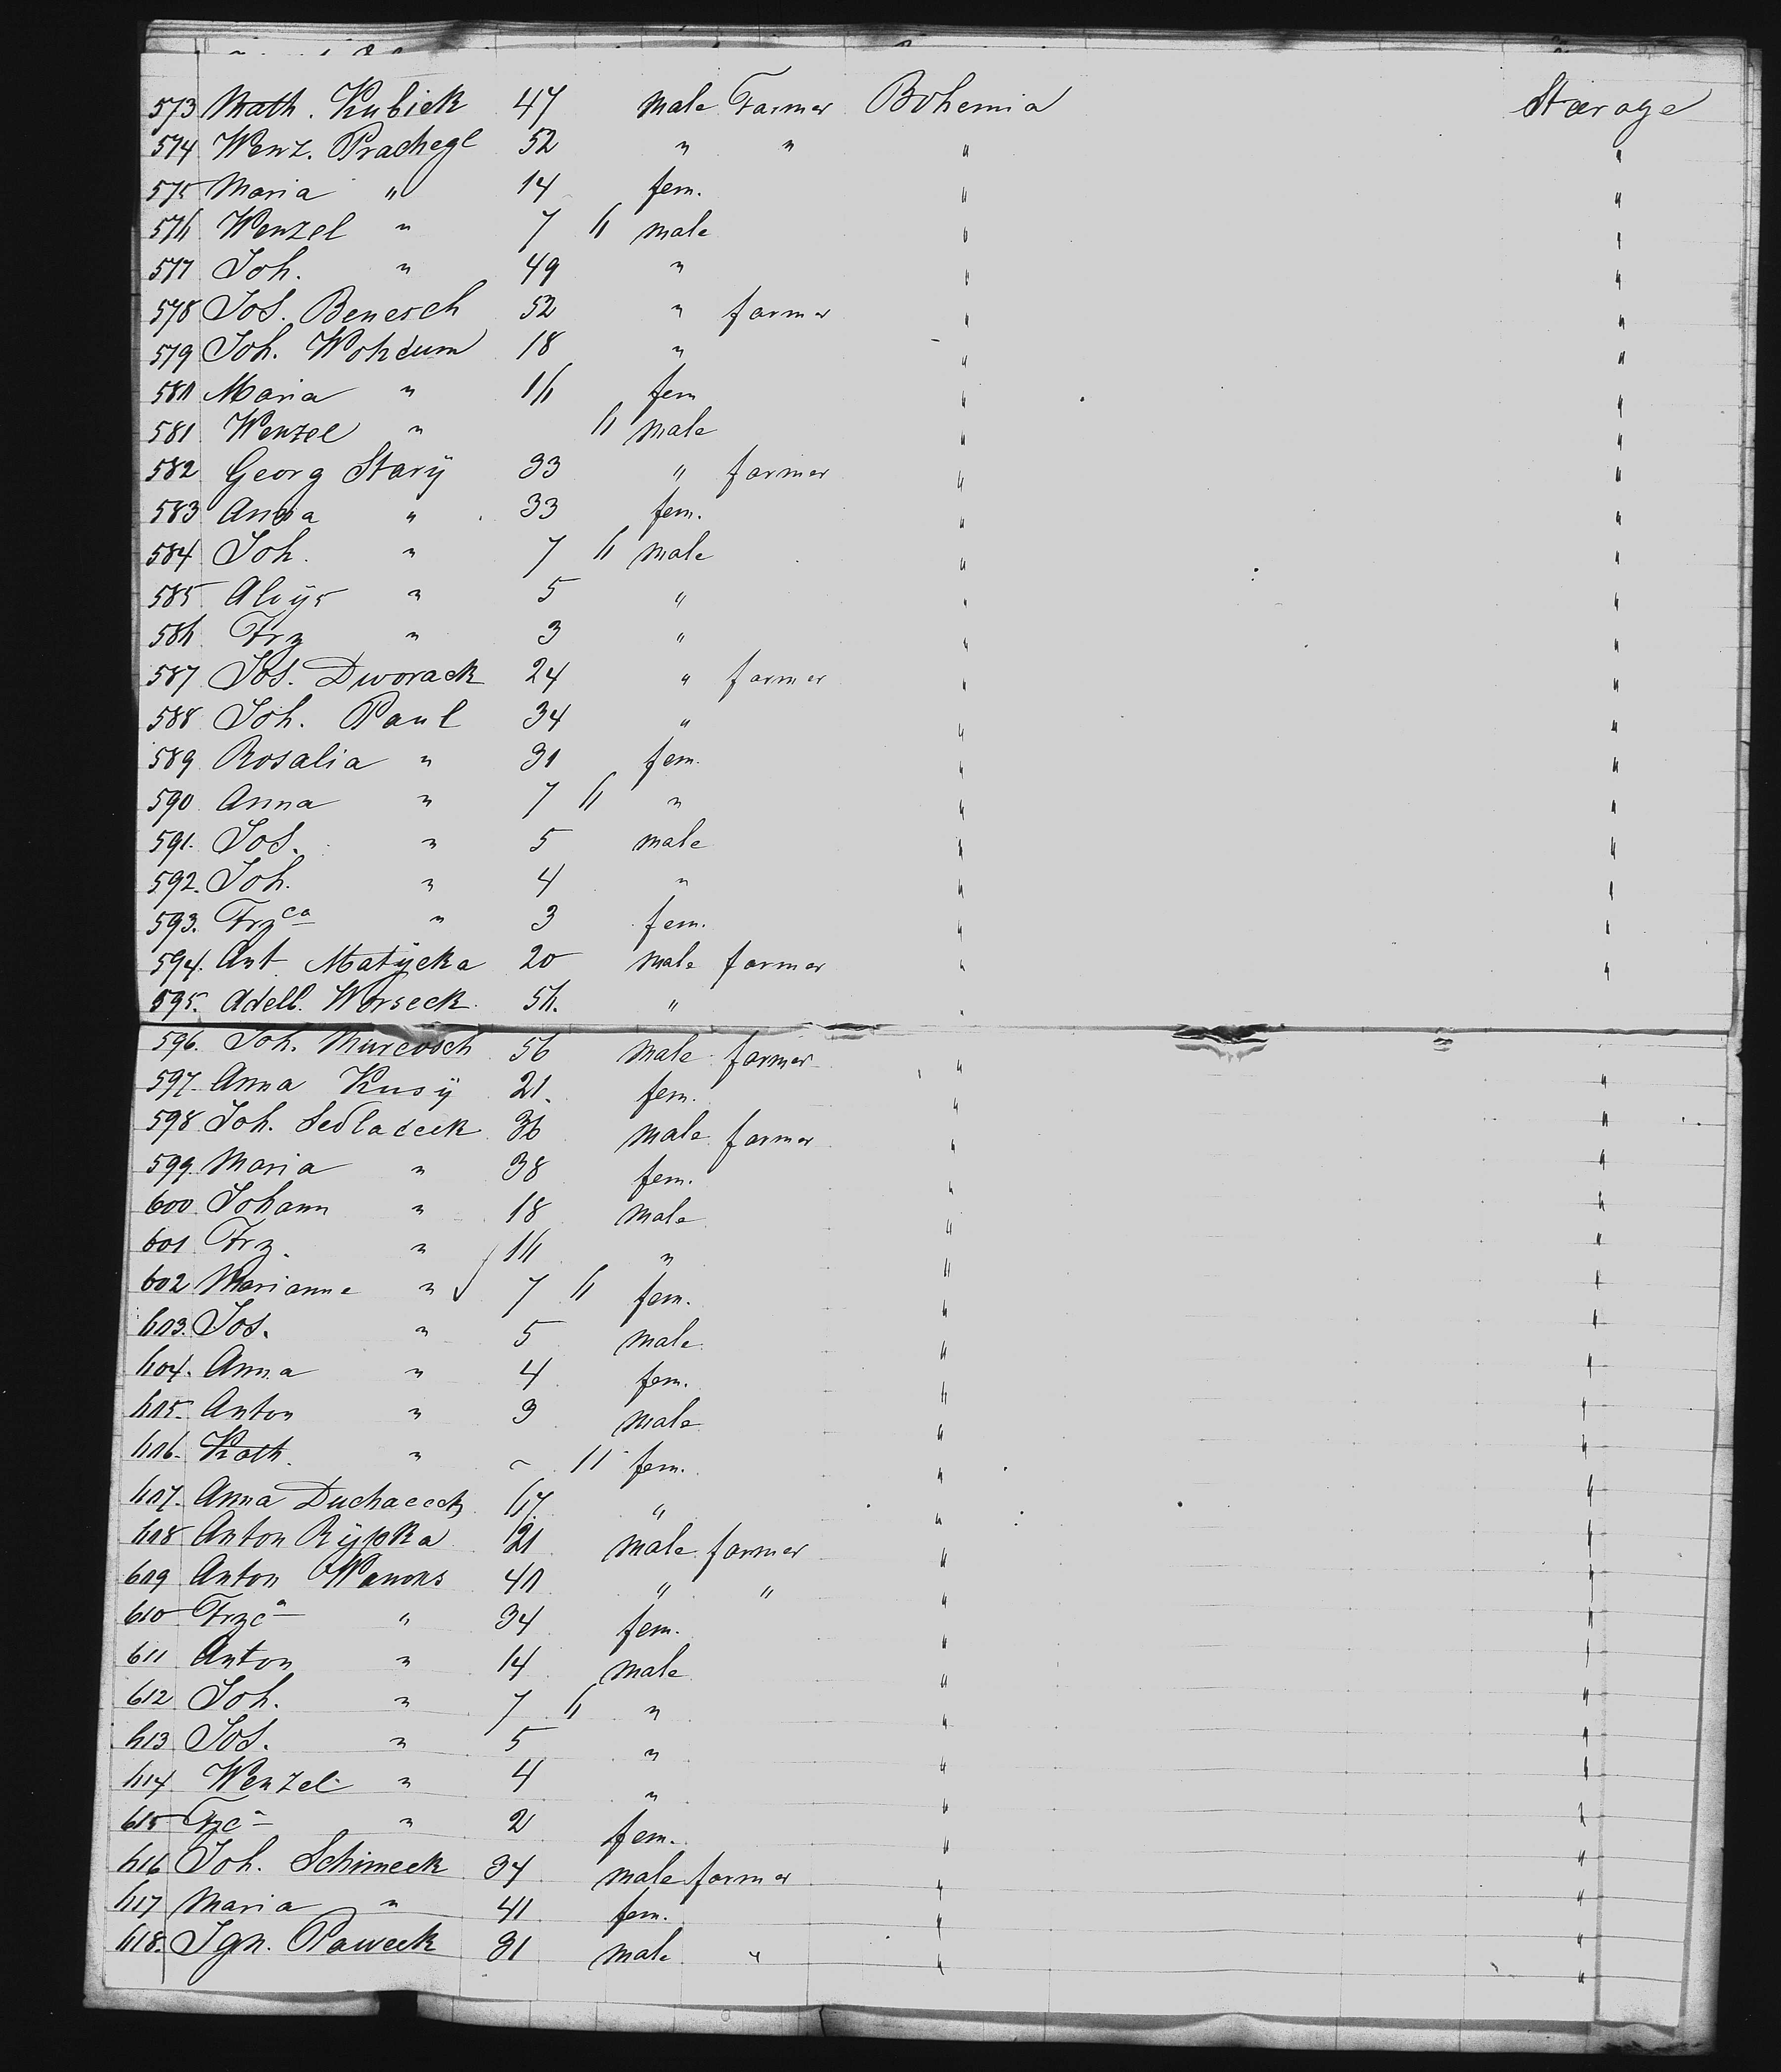 573 Math. Kubick 47 male Farmer Bohemia Steerage
574 Wenz. Prachegl 52 " " " "
575 Maria " 14 fem. " "
576 Wenzel " 7 6 male " "
577 Joh. " 49 " " "
578 Jos. Benesch 52 " farmer " "
579 Joh. Wohdum 18 " " "
580 Maria " 16 fem " "
581 Wenzel " 6 male " "
582 Georg Starÿ 33 " farmer " "
583 Anna " 33 fem. " "
584 Joh. " 7 6 male " "
585 Aloys " 5 " " "
586 Frz " 3 " " "
587 Jos. Dworack 24 " farmer " "
588 Joh. Paul 34 " " "
589 Rosalia " 31 fem. " "
590 Anna " 7 6 " " "
591. Jos. " 5 male " "
592. Joh. " 4 " " "
593. Frzca " 3 fem. " "
594. Ant. Matÿcka 20 male farmer " "
595. Adelb. Worseck 56. " "
596. Joh. 56 male farmer " "
597. Anna Kusÿ 21. fem. " "
598 Joh. Sedlaceck 36 male farmer " "
599. Maria " 38 fem. " "
600 Johann " 18 male " "
601 Frz. " 16 " " "
602 Marianne " 7 6 fem. " "
603. Jos. " 5 male " "
604. Anna " 4 fem. " "
605. Anton " 3 male " "
606. Kath. " ~ 11 fem. " "
607. Anna Duchaceck 67. " " "
608 Anton Rÿpka 21 male farmer " "
609 Anton 40 " " " "
610 Frzca " 34 fem. " "
611 Anton " 14 male " "
612 Joh. " 7 6 " " "
613 Jos. " 5 " " "
614 Wenzel " 4 " " "
615 Fzc " 2 fem. " "
616 Joh. Schimeck 34 male farmer " "
617 Maria " 41 fem. " "
618. Ign. Paweck 31 male " " "